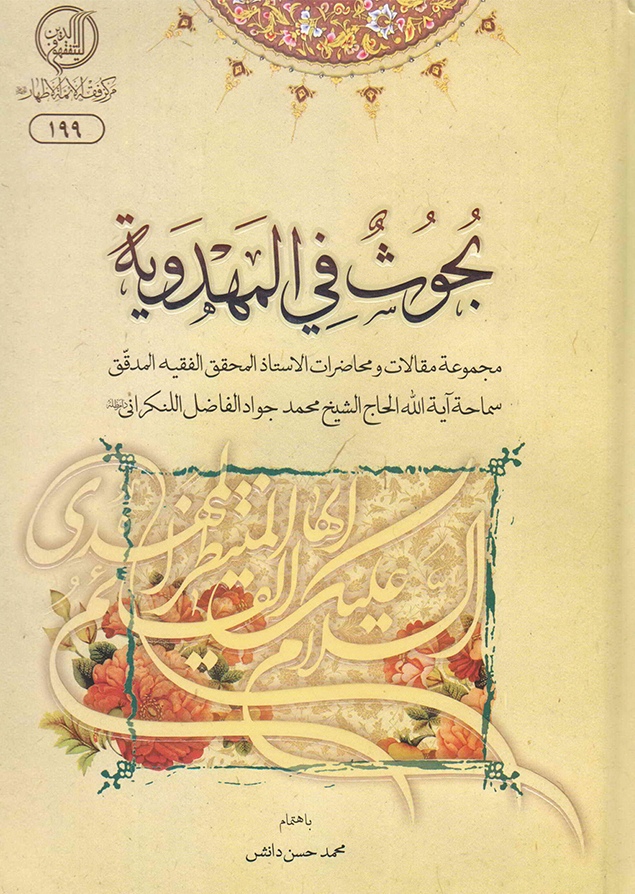 ليتفقهوا في الدين
مركز فقه الأئمة الأطهار
١٩٩
بُحُوثٌ فِي المَهْدَوِيَّة
مجموعة مقالات و محاضرات الاستاذ المحقق الفقيه المدقّق
سماحة آية الله الحاج الشيخ محمد جواد الفاضل اللنكراني
السلام عليك ايها القائم المنتظر المهدى
باهتمام
محمد حسن دانش